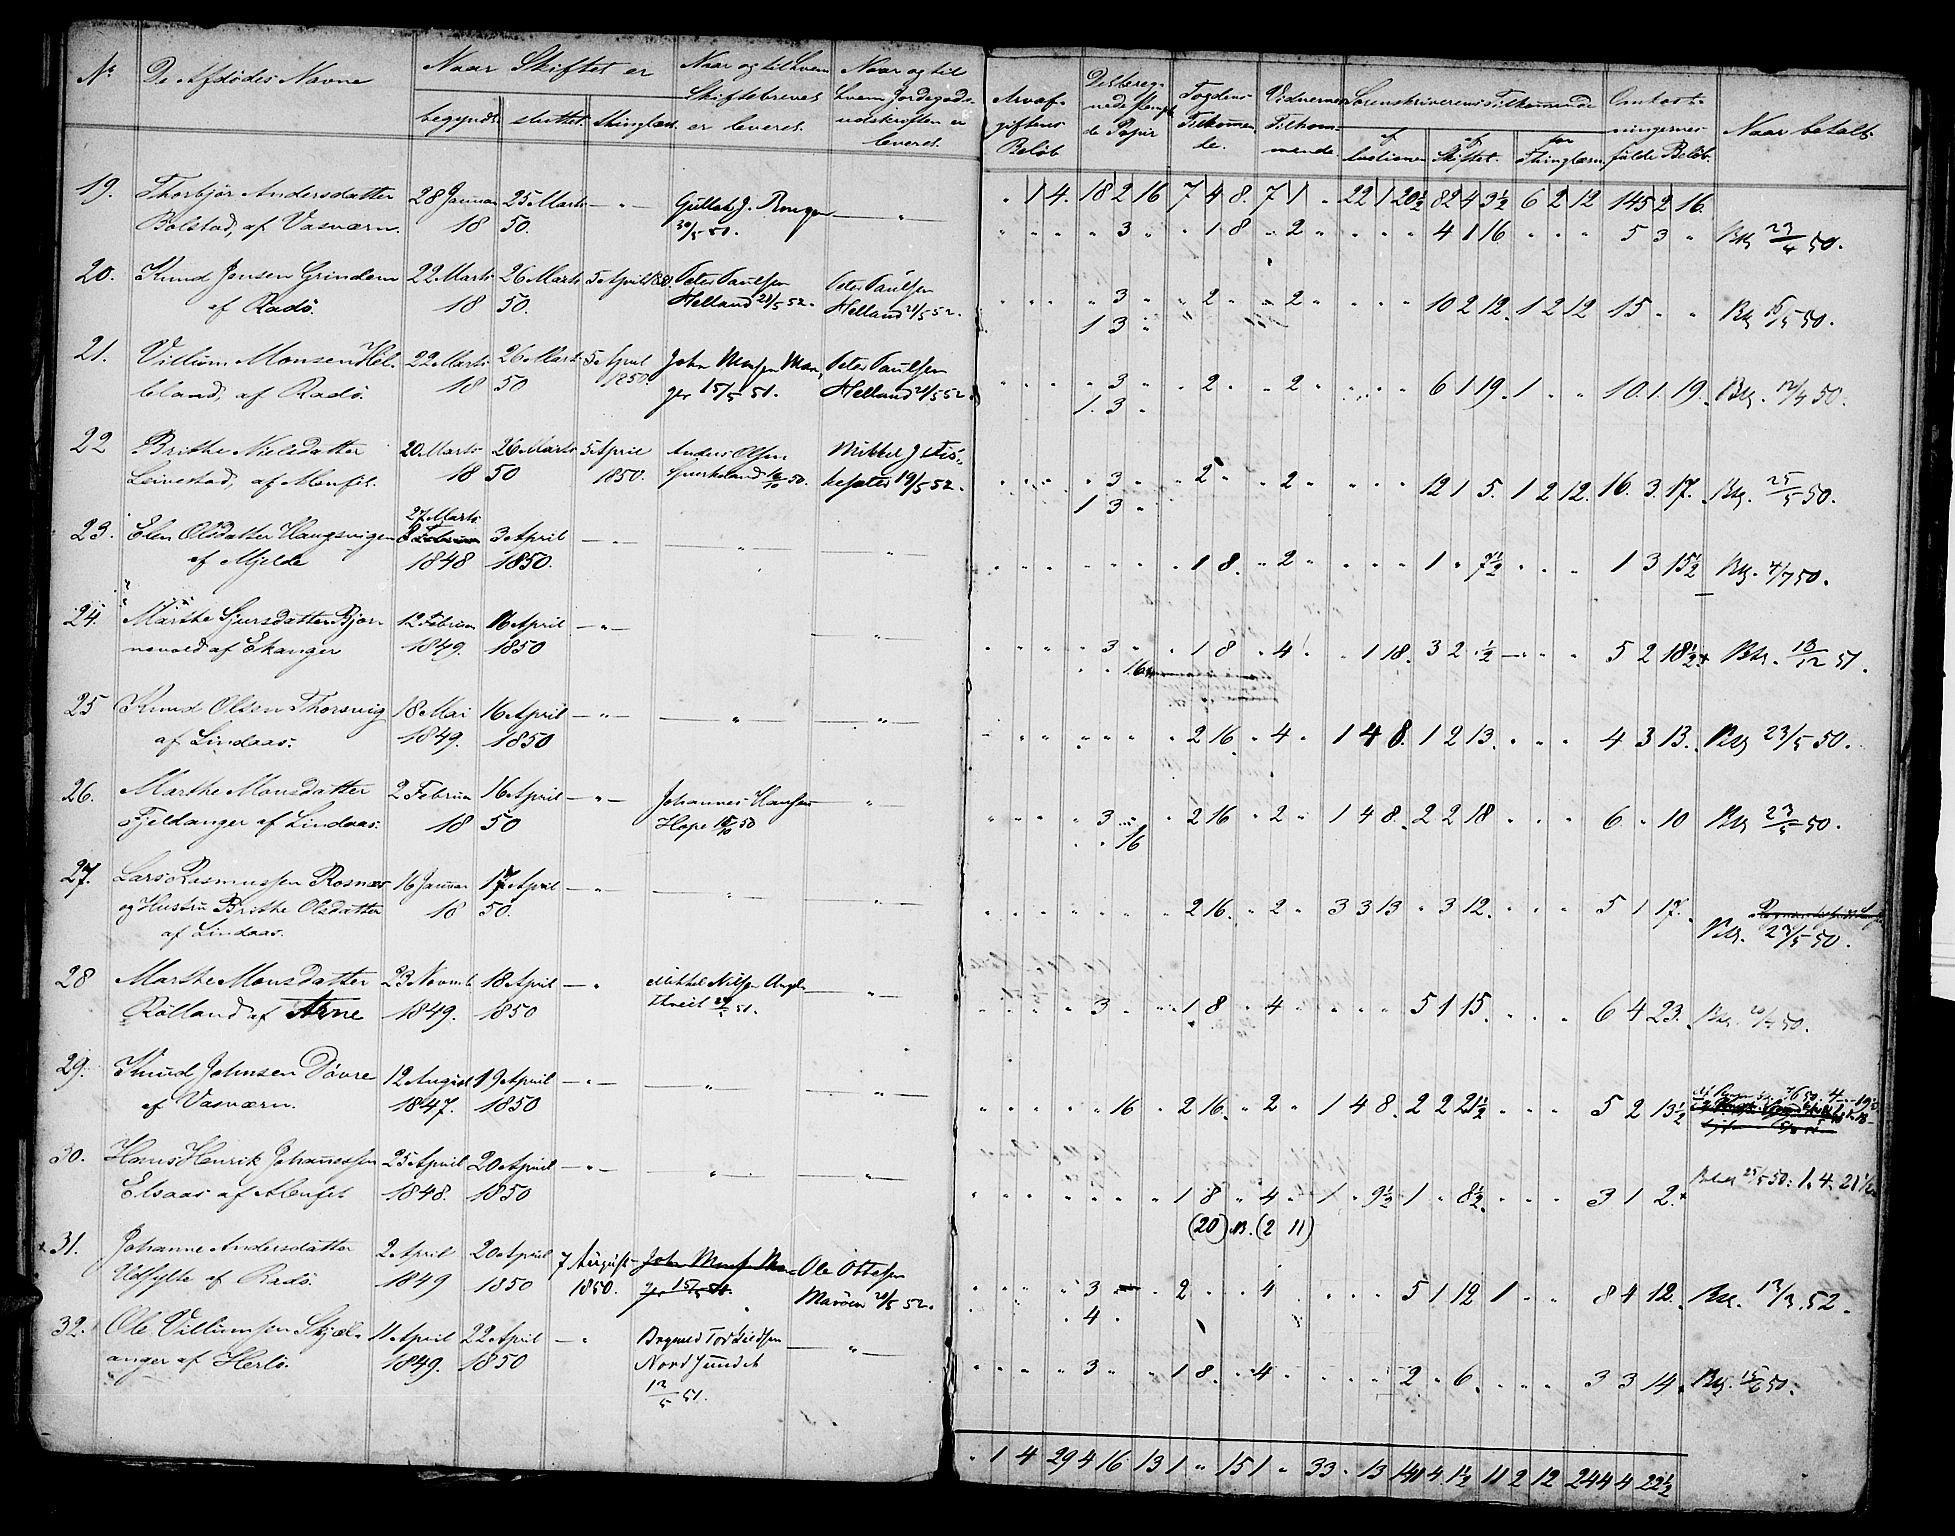 No
De Afdødes Navne
Naar Skiftet er
begyndt
sluttet
thinglæst
Naar og til hvem
Skiftebrevet
er leveret.
Naar og til
hvem Jordegods-
udskriften er
leveret.
Arveaf-
giftens
Beløb
Det bereg-
nede stemp-
lede Papir
Fogdens
Tilkommen-
de.
Vidnernes
Tilkom-
mende.
Sorenskriverens Tilkommende
af
Auctionen
af
Skiftet.
for
Thinglæsn.
Omkost-
ningernes
fulde Beløb.
Naar betalt
19. Thorbjør Andersdatter 28 Januar 25 Marts — " — Gullak J. Ronge — " — " 1 4. 18 2 16 7 4 8. 7 1 " 22 1 20½ 82 4 3½ 6 2 12 145 2 16.
Bolstad, af Vasværn. 18 50. 30/5 50. " 3 " " 1 8 " 2 " 4 1 16 " " " 5 3 " Btlg 23/4 50.
20. Knud Jensen Grindem 22 Marts 26 Marts 5 April Peter Paulsen Peter Paulsen
af Radø. 18 50. Helland 21/5 52. Helland 21/5 52. " 3 " " 2 " " 2 " " " " 10 2 12. 1 2 12 15 " " Btlg 50.
1 3 "
21. Villum Monsen Hel- 22 Marts 26 Marts 5 April John Monsen Man- Peter Paulsen
leland, af Radø. 18 50 1850 ger 15/5 51. Helland 21/5 52. " 3 " " 2 " " 2 " " " " 6 1 19. 1 " " 10. 1. 19. Btlg. 12/4 50.
1. 3 "
22 Brithe Nielsdatter 20 Marts 26 Marts 5 April Anders Olsen Mikkel J
Leirestad, af Menfet. 18 50 1850. 16/10 50. 19/5 52. " 3 " " 2 " " 2 " " " " 12 1 5. 1 2 12. 16. 3. 17. Btlg. 25/5 50.
1 3 "
23. Elen Olsdatter Haugsvigen 27 Marts 3 April — " — — " — — " —
af Mjelde 1848 1850. 1 8. " 2 " " " " 1 " 7½ " " " 1 3 15½ Btlg. 4/7 50.
24. Marthe Gjursdatter Bjør- 12 Februar 16 April — " — — " —
nevold af Ekanger 1849. 1850 " 3 " " 1 8 " 4 " " 1 18. 3 2 ½ — " " 5 2 18½ Btlg. 13/12 51.
" " 16
25 Knud Olsen Thorsvig 18 Mai 16 April — " — — " — — " —
af Lindaas. 1849. 1850 " 2 16 " 4 " 1 4 8. 1 2 13. " " " 4 3 13. Btlg 23/5 50.
26. Marthe Monsdatter 2 Februar 16 April — " — Johannes Hansen — " —
Fjeldanger af Lindaas. 18 50 Hope 50 " 3 " " 2 16 " 2 " 1 4 8. 2 2 18 " " " 6. " 10 Btlg 23/5 50.
" " 16
27. Lars Rasmussen Rosnæs 16 Januar 17 April — " — — " — — " —
og Hustru Brithe Olsdatter 18 50. " 2 16. " 2 " 3 3 13 " 3 12. " " " 5 1 17.
af Lindaas. Btlg. 23/5 50.
28 Marthe Monsdatter 23 Novemb 18 April — " Mikkel Nilsen Angl- — " —
Rølland af Arne 1849. 1850 thveit 51. " 3 " " 1 8 " 4 " " " " 5 1 15. " " " 6 4 23. Btlg. 50.
29. Knud Johnsen Døvre 12 August 19 April — " — — " — — " —
af Vasværn. 1847. 1850 " " 16 " 2 16. " 2 " 1 4 8. 2 2 21½ " " " 5 2 13½
30. Hans Henrik Johannessen 25 April 20 April — " — — " — — " —
Elsaas af Alenfet 1848. 1850 " 1 8 " 4 " 1 " 9½ 1 " 8½ " " " 3 1 2. Betalt 25/5 50: 1. 4. 21½
(20) (2 11)
31. Johanne Andersdatter 2 April 20 April 7 August John Mons Man- Ole Ottesen
Udsylte af Radø. 1849 1850 1850. ger 15/5 51. Marøen 21/5 52. " 3 " 2 " 4 " " " 5 1 12 1 " " 8 4 12. Btlg. 13/3 52.
" 4 "
32. Ole Villumsen Skjæl- 11 April 22 April — " Brynild Torkildsen — " —
anger af Herlø. 1849. 1850 Nordsundet " 3 " " 1 8 " 4 " " " " 2 " 6. " " " 3 3 14. Btlg. 15/6 50.
12/5 51.
" 1 4 29 4 16 13 1 " 15 1 " 33 " 13 141 4. 1½ 11 2 12 244 4 22½